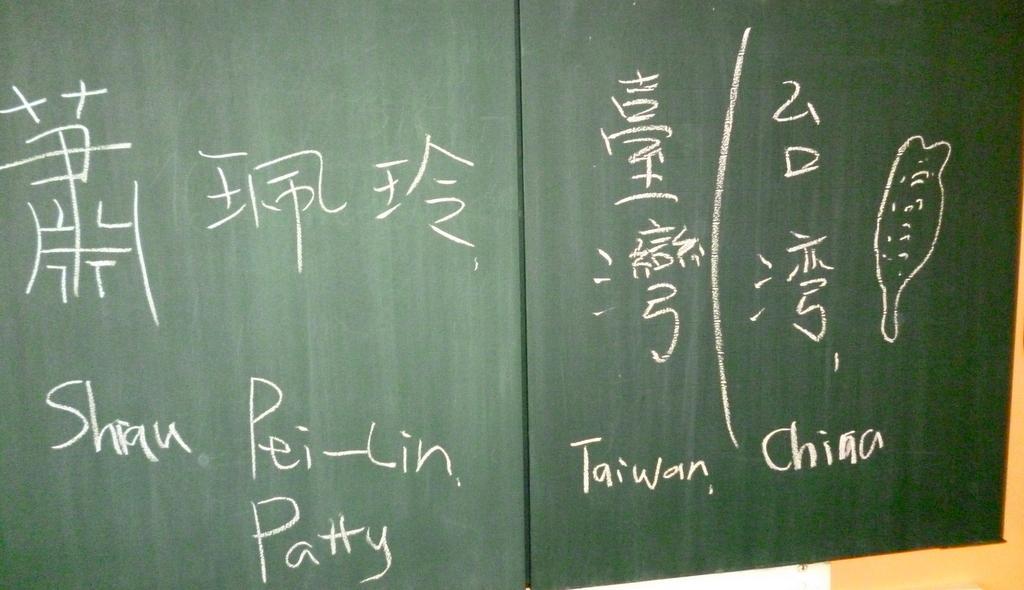 蕭 珮玲
Shiau Pei-Lin
Patty
臺灣
Taiwan
台湾
China